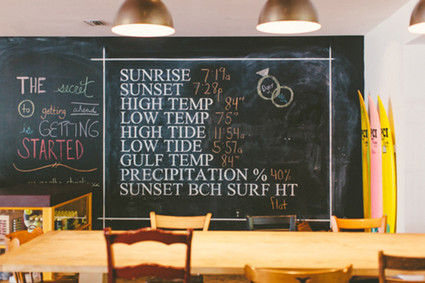 THE secret
to getting ahead
is GETTING
STARTED
SUNRISE 7:19a
SUNSET 7:28p
HIGH TEMP 84°
LOW TEMP 75°
HIGH TIDE 11:54a
LOW TIDE 5:57a
GULF TEMP 84°
PRECIPITATION % 40%
SUNSET BCH SURF HT
flat